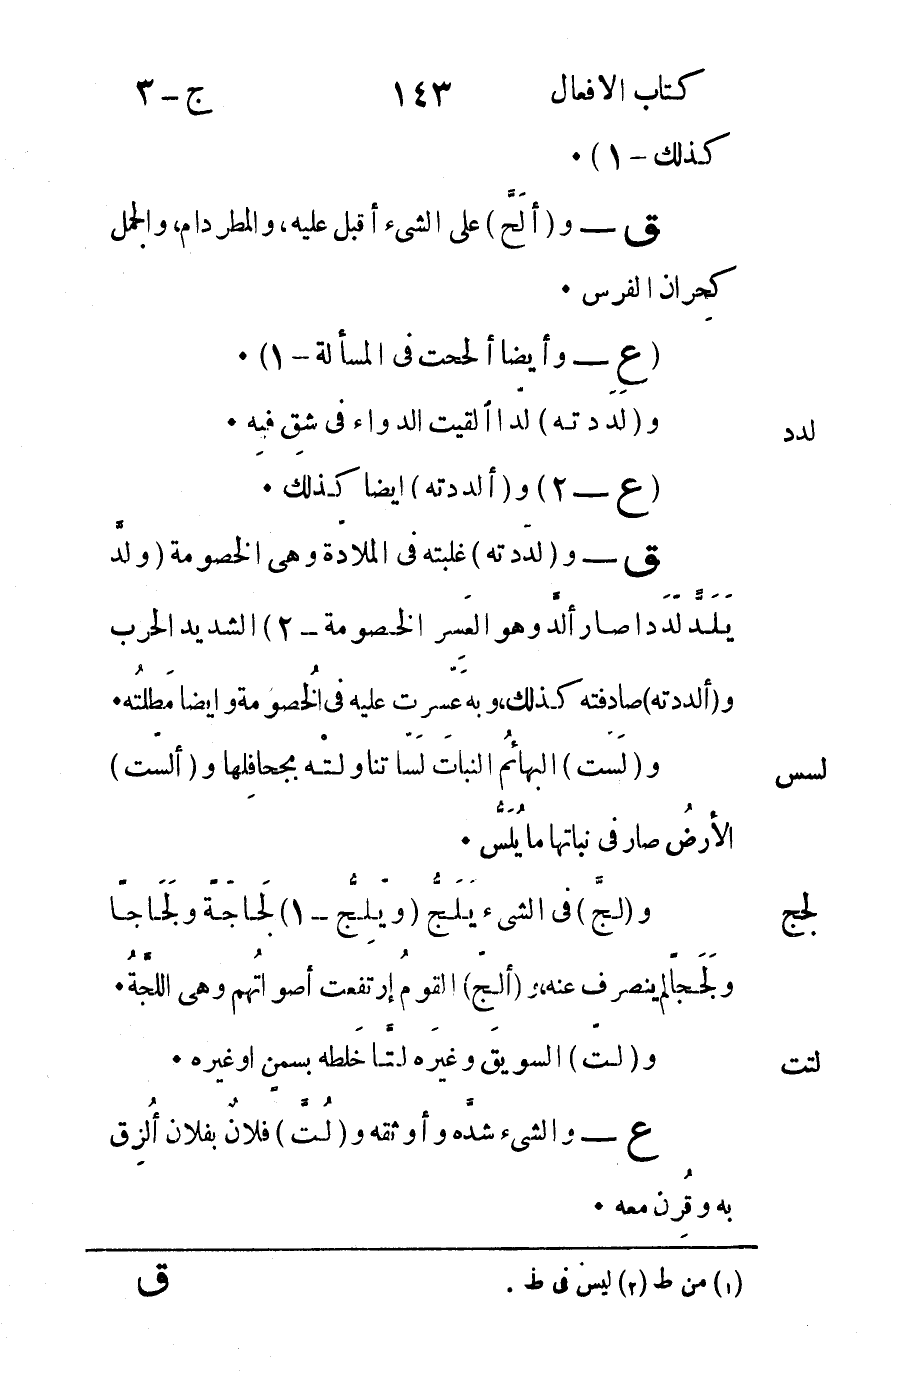 كتاب الافعال ١٤٣ ج - ٣
كذلك - ١) •
ق — و (ألَحَّ) على الشىء أقبل عليه، والمطر دام، والجمل
كحِران الفرس •
(ع — وأيضا ألححت فى المسألة - ١) •
لدد و (لَدَدته) لدا ألقيت الدواء فى شِق فيِه •
(ع — ٢) و (ألددته) ايضا كذلك •
ق — و (لدّدته) غلبته فى الملادّة وهى الخصومة (ولدَّ
يَلَدَّ لَدَدا صار ألدَّ وهو العَسر الخصومة - ٢) الشديد الحرب
و (ألددته) صادفته كذلك، وبه عَسّرت عليه فى الخُصوَمة وايضا مَطلتُه •
لسس و (لَسَّت) البهائمُ النباتَ لَسّا تناولته بجحافلِها و (ألسّت)
الأرضُ صار فى نباتها ما يُلَسُّ •
لجج و (لجَّ) فى الشىء يَلَجُّ (ويّلِجُّ - ١) لَجاجَةً ولَجَاجاً
ولَجَجاً لم ينصرف عنه، و (ألجّ) القومُ إرتفعت أصواتُهم وهى اللَجَّةُ •
لتت و (لتّ) السويقَ وغيرَه لتَّا خلَطه بسمنٍ اوغيره •
ع — والشىء شدَّه وأوثقه و (لُتَّ) فلانٌ بفلانٍ ألُزِق
به وقُرِن معه •
(١) من ط (٢) ليس فى ط .
ق